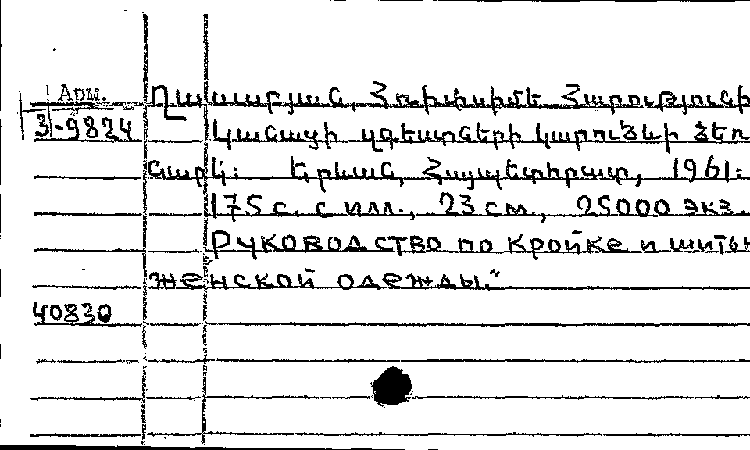 Арм.
Ղասաբյան, Հռիփսիմե Հարությունի
3-9824
Կանացի զգեստների կարուձևի ձեռ
նարկ: Երևան, Հայպետհրատ, 1961:
175 с. с илл., 23 см., 25000 экз.
Руководство по кройке и шитью
женской одежды."
40830